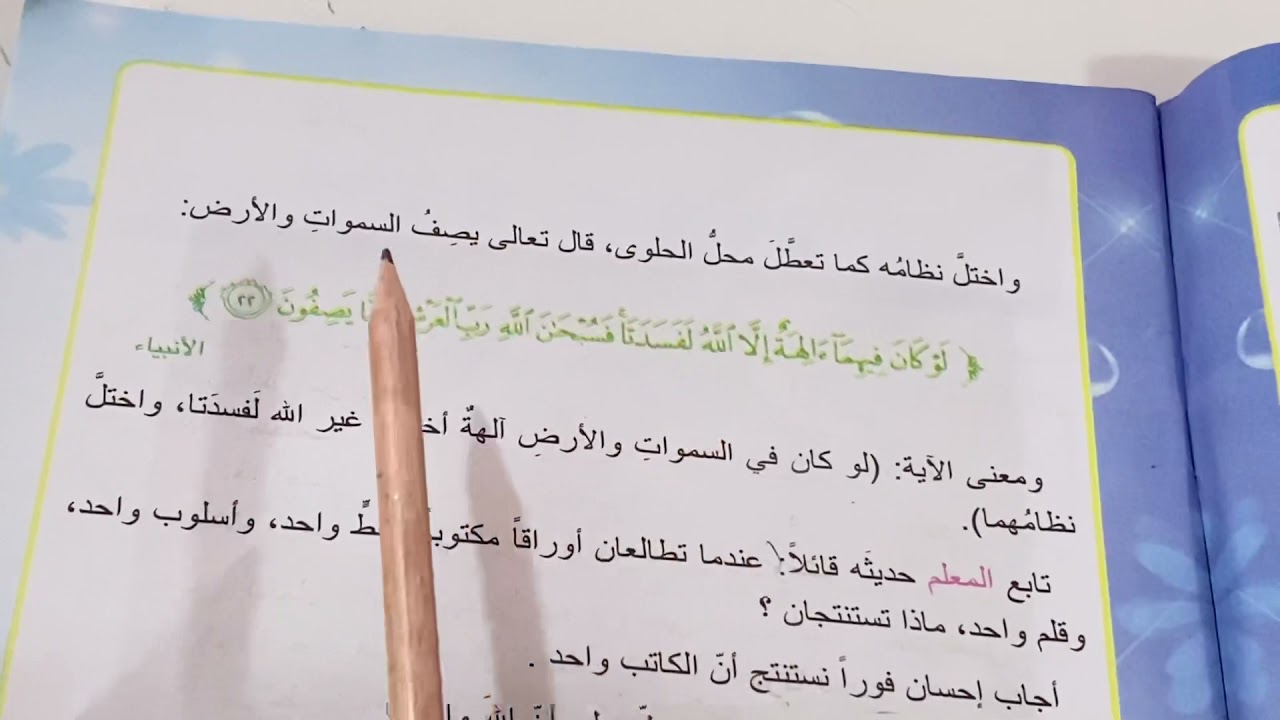 واختلَّ نظامُه كما تعطَّلَ محلُّ الحلوى، قال تعالى يصِفُ السمواتِ والأرض:
﴿ لَوْ كَانَ فِيهِمَآ ءَالِهَةٌ إِلَّا ٱللَّهُ لَفَسَدَتَا ۚ فَسُبْحَٰنَ ٱللَّهِ رَبِّ ٱلْعَرْشِ يَصِفُونَ ٢٢ ﴾
الأنبياء
ومعنى الآية: (لو كان في السمواتِ والأرضِ آلهةٌ غير الله لَفسدَتا، واختلَّ
نظامُهما).
تابع المعلم حديثَه قائلاً: عندما تطالعان أوراقاً واحد، وأسلوب واحد،
وقلم واحد، ماذا تستنتجان ؟
أجاب إحسان فوراً نستنتج أنّ الكاتب واحد .